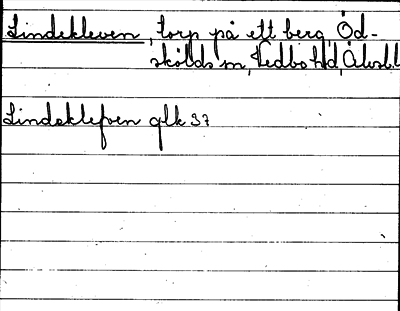 Lindekleven, torp på ett berg, Öd-
skölds sn, Vedbo hd, Älvsbl.
Lindeklefven glk 37